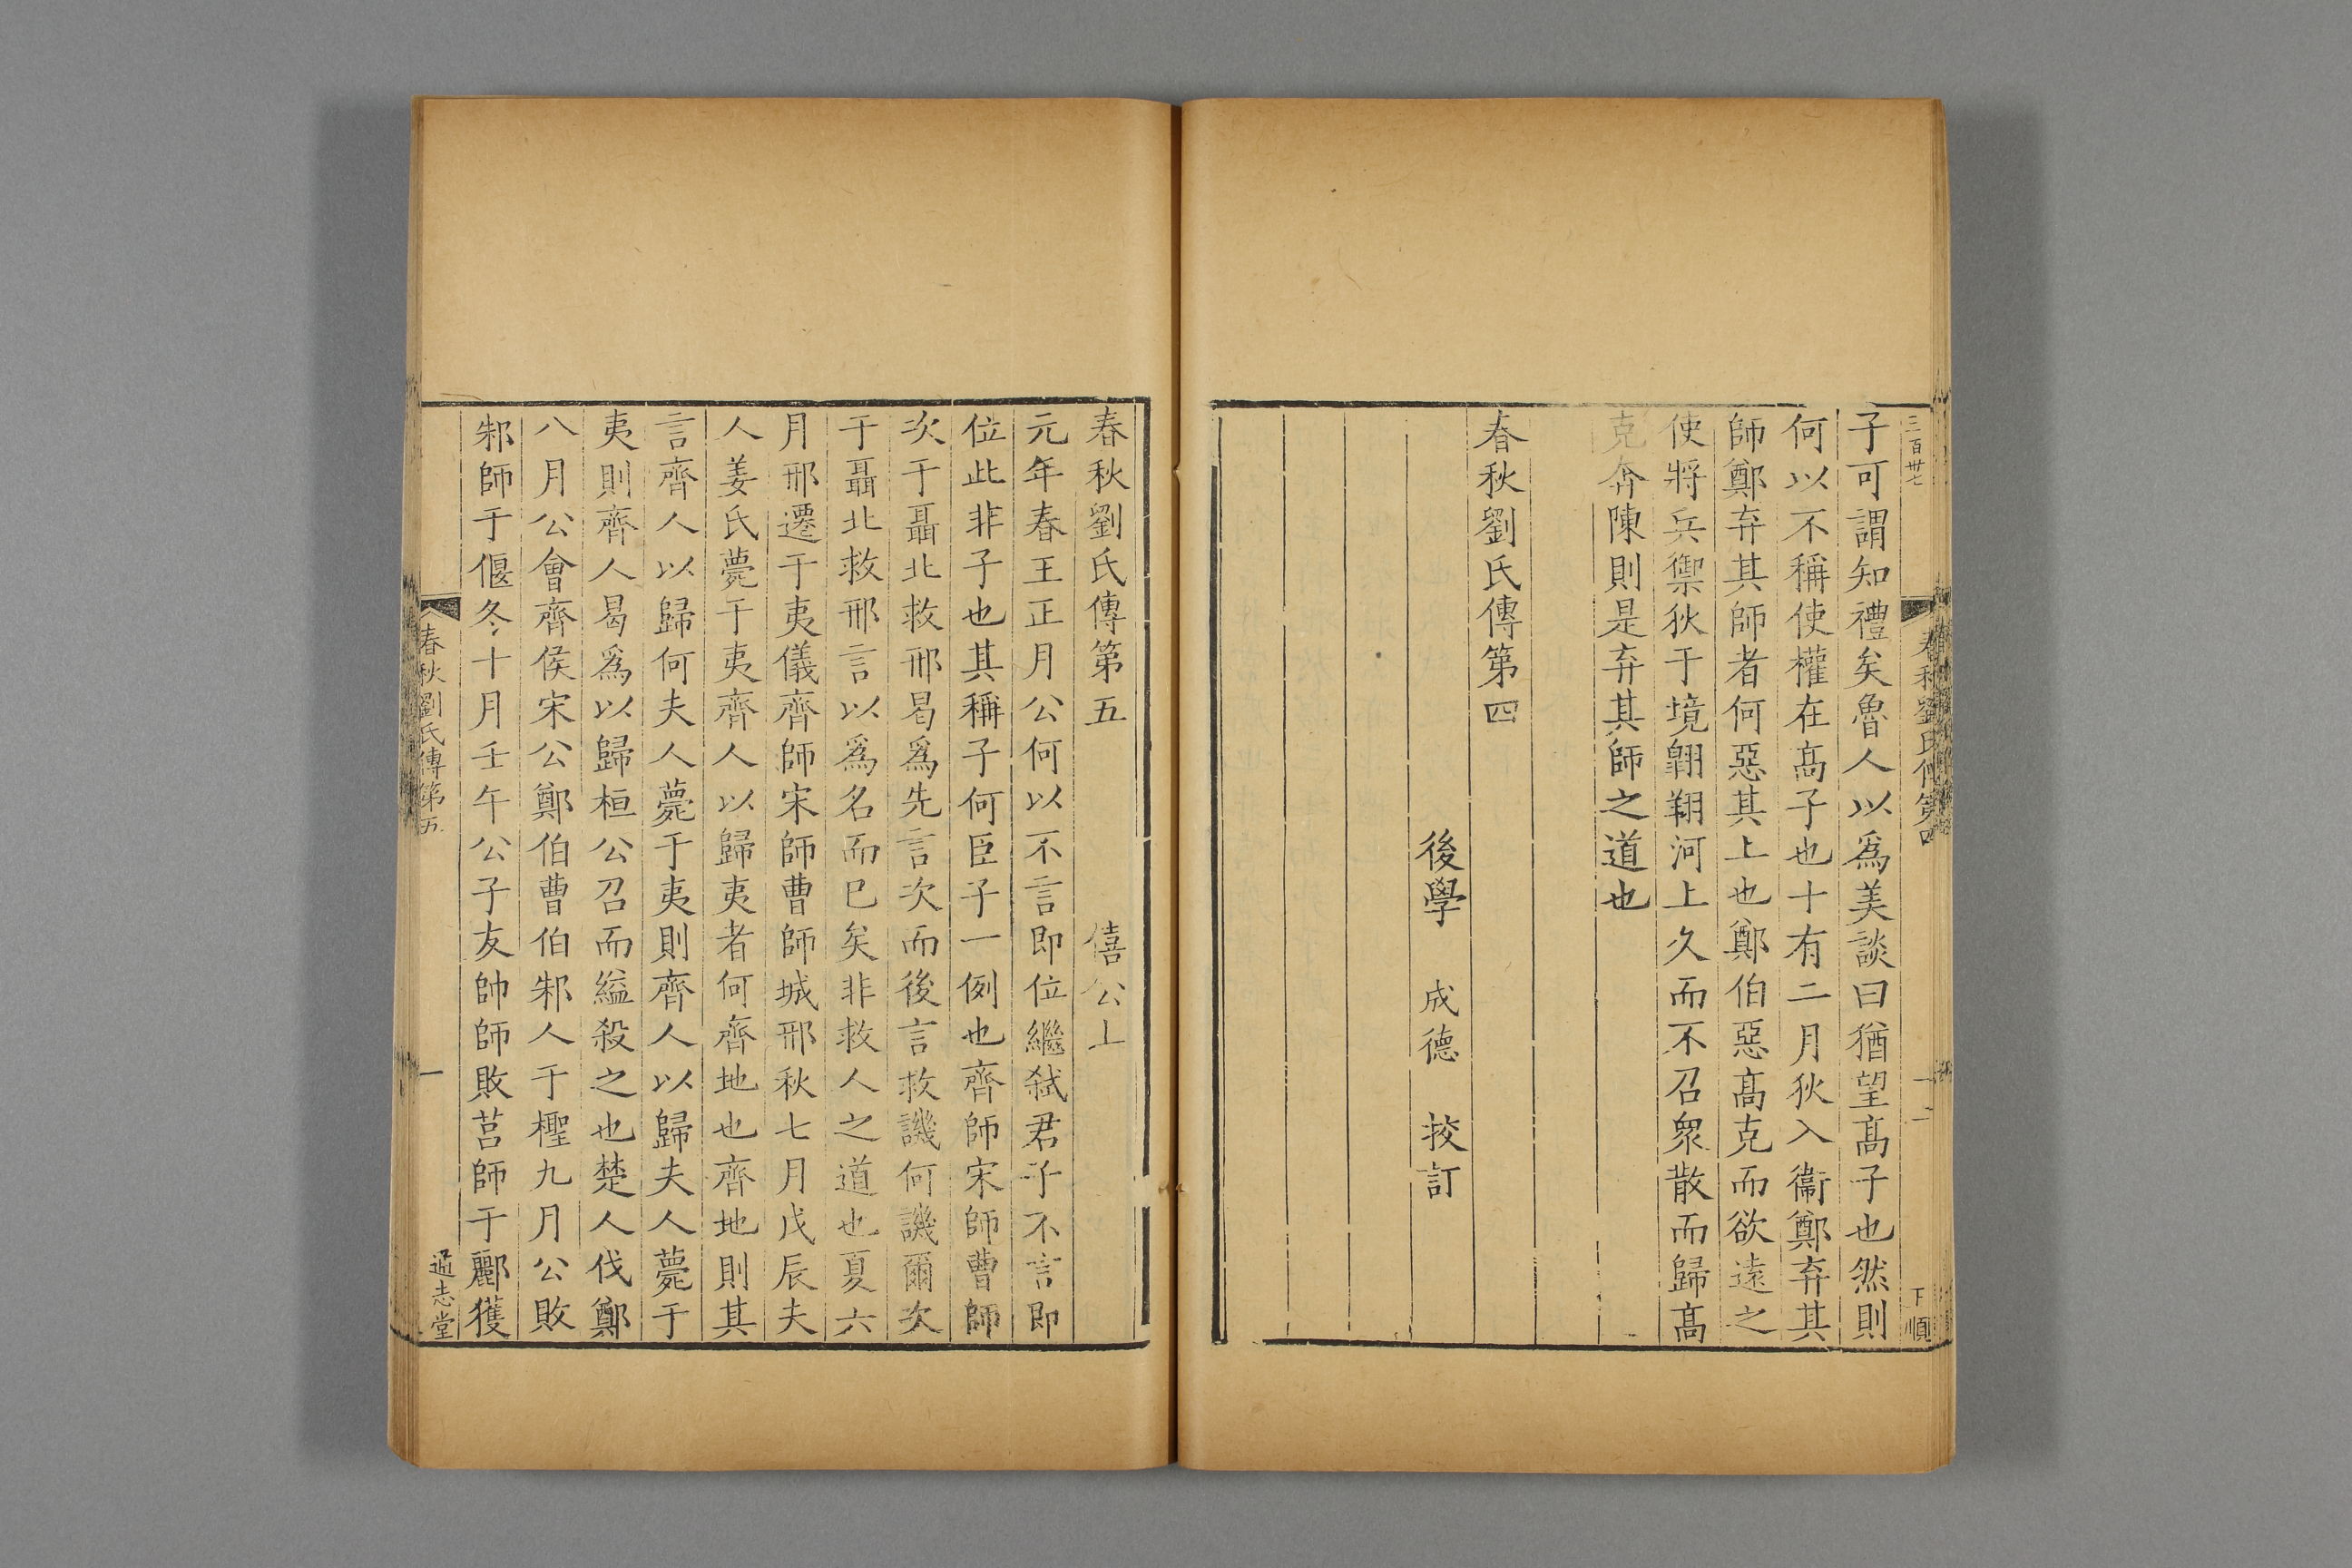 三百卄七
春秋劉氏傳第四
十二
下順
子可謂知禮矣魯人以爲美談曰猶望髙子也然則
何以不稱使權在髙子也十有二月狄入衞鄭弃其
師鄭弃其師者何惡其上也鄭伯惡髙克而欲逺之
使將兵禦狄于境翺翔河上久而不召衆散而歸髙
克奔陳則是弃其師之道也
春秋劉氏傳第四
後學 成德 挍訂
春秋劉氏傳第五 僖公上
元年春王正月公何以不言即位繼弑君子不言即
位此非子也其稱子何臣子一例也齊師宋師曹師
次于聶北救邢曷爲先言次而後言救譏何譏爾次
于聶北救邢言以爲名而已矣非救人之道也夏六
月邢遷于夷儀齊師宋師曹師城邢秋七月戊辰夫
人姜氏薨于夷齊人以歸夷者何齊地也齊地則其
言齊人以歸何夫人薨于夷則齊人以歸夫人薨于
夷則齊人曷爲以歸桓公召而縊殺之也楚人伐鄭
八月公會齊侯宋公鄭伯曹伯邾人于檉九月公敗
邾師于偃冬十月壬午公子友帥師敗莒師于酈獲
春秋劉氏傳第五
一
通志堂